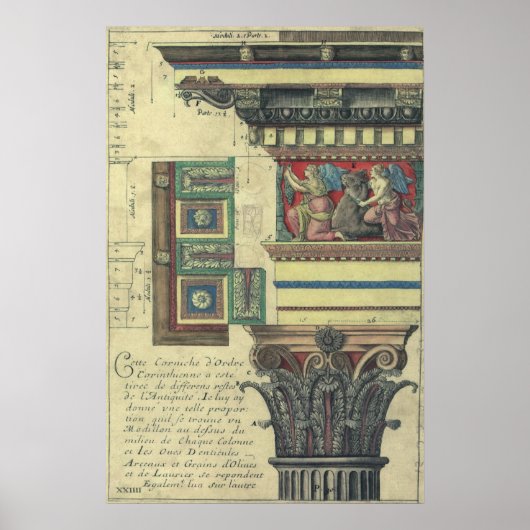 Moduli 2. Parte 2.
Cette Corniche d'Ordre
Corinthienne a esté
tirée de differens restes
de l'Antiquité. Ie luy ay
donné une telle propor-
tion quil se trouve un
Modillon au dessus du
milieu de Chaque Colonne
et les Oues Denticules
Arceaux et Grains d'Oliues
et de Laurier se repondent
Egalemt. lun sur l'autre
XXIIII